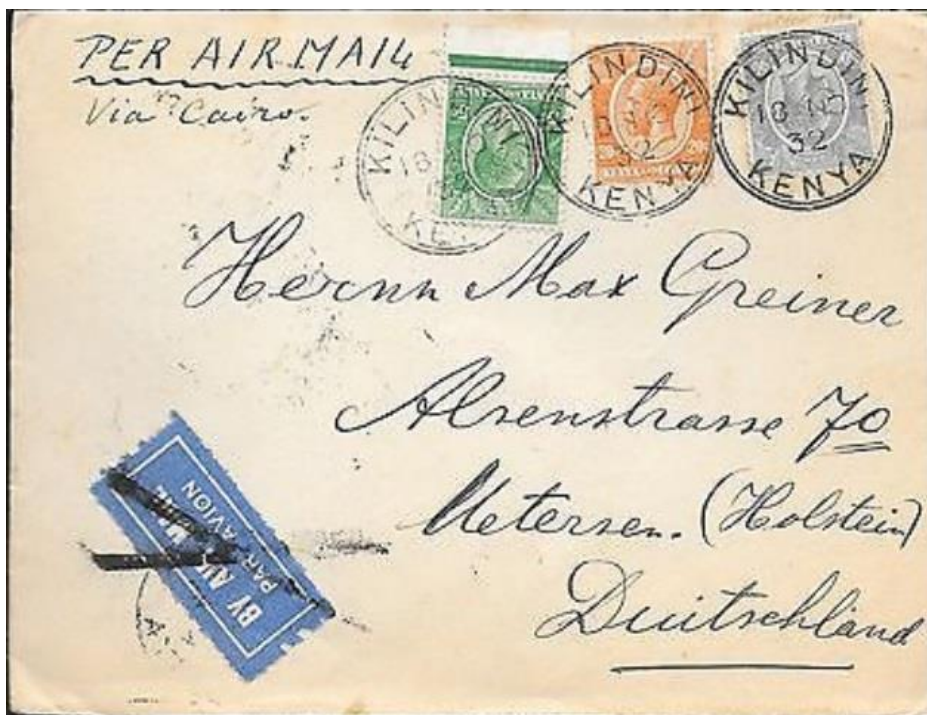 PER AIR MAIL
Via Cairo.
KILINDINI
18
KE
KILINDINI
32
KENYA
KILINDINI
18
32
KENYA
Hernn Max Greiner
Alsenstrasse 70
Uetersen. (Holstein)
Duitschländ
BY AIR MAIL
PAR AVION